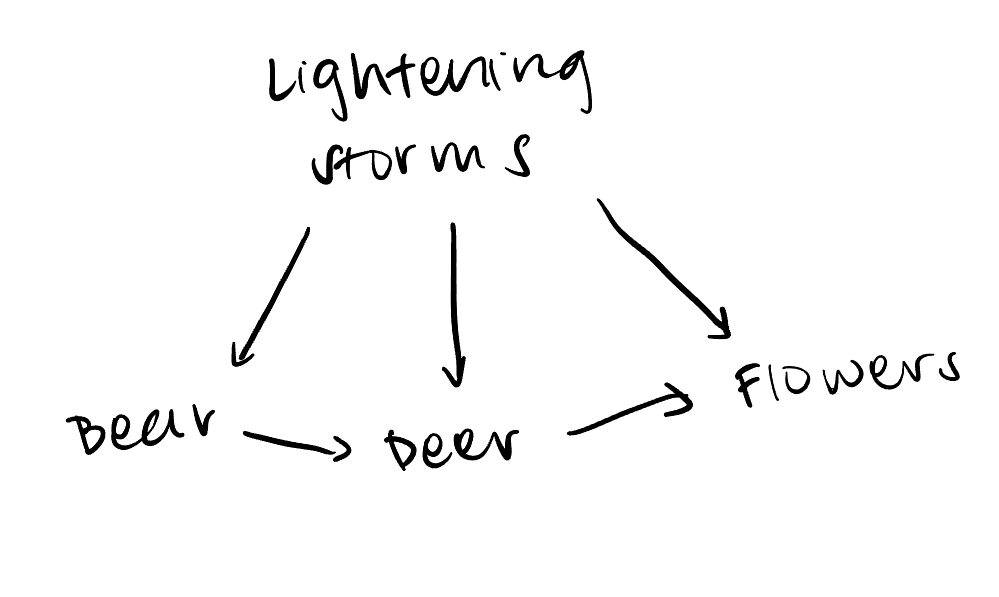 Lightening
storms
Bear
Deer
Flowers